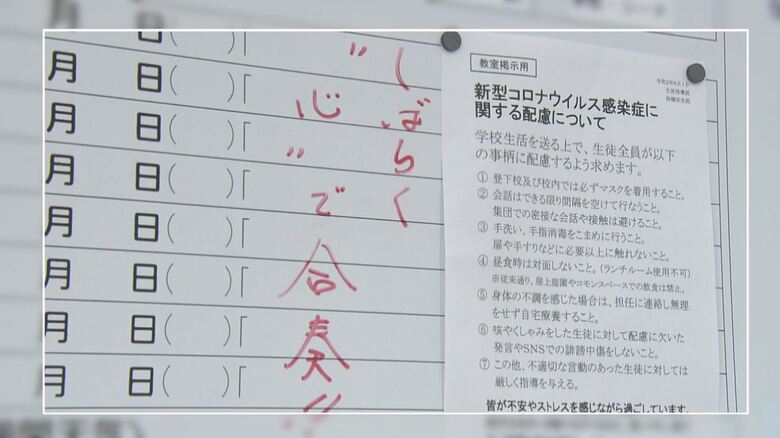 月 日( )「
月 日( )「
月 日( )「
月 日( )「
月 日( )「
月 日( )「
月 日( )「
月 日( )「
しばらく
"心"で合奏!!
教室掲示用
令和2年6月1日
生徒指導部
保健安全部
新型コロナウイルス感染症に
関する配慮について
学校生活を送る上で、生徒全員が以下
の事柄に配慮するよう求めます。
① 登下校及び校内では必ずマスクを着用すること。
② 会話はできる限り間隔を空けて行なうこと。
集団での密接な会話や接触は避けること。
③ 手洗い、手指消毒をこまめに行うこと。
扉や手すりなどに必要以上に触れないこと。
④ 昼食時は対面しないこと。(ランチルーム使用不可)
※従来通り、屋上庭園やコモンスペースでの飲食は禁止。
⑤ 身体の不調を感じた場合は、担任に連絡し無理
をせず自宅療養すること。
⑥ 咳やくしゃみをした生徒に対して配慮に欠いた
発言やSNSでの誹謗中傷をしないこと。
⑦ この他、不適切な言動のあった生徒に対しては
厳しく指導を与える。
皆が不安やストレスを感じながら過ごしています。